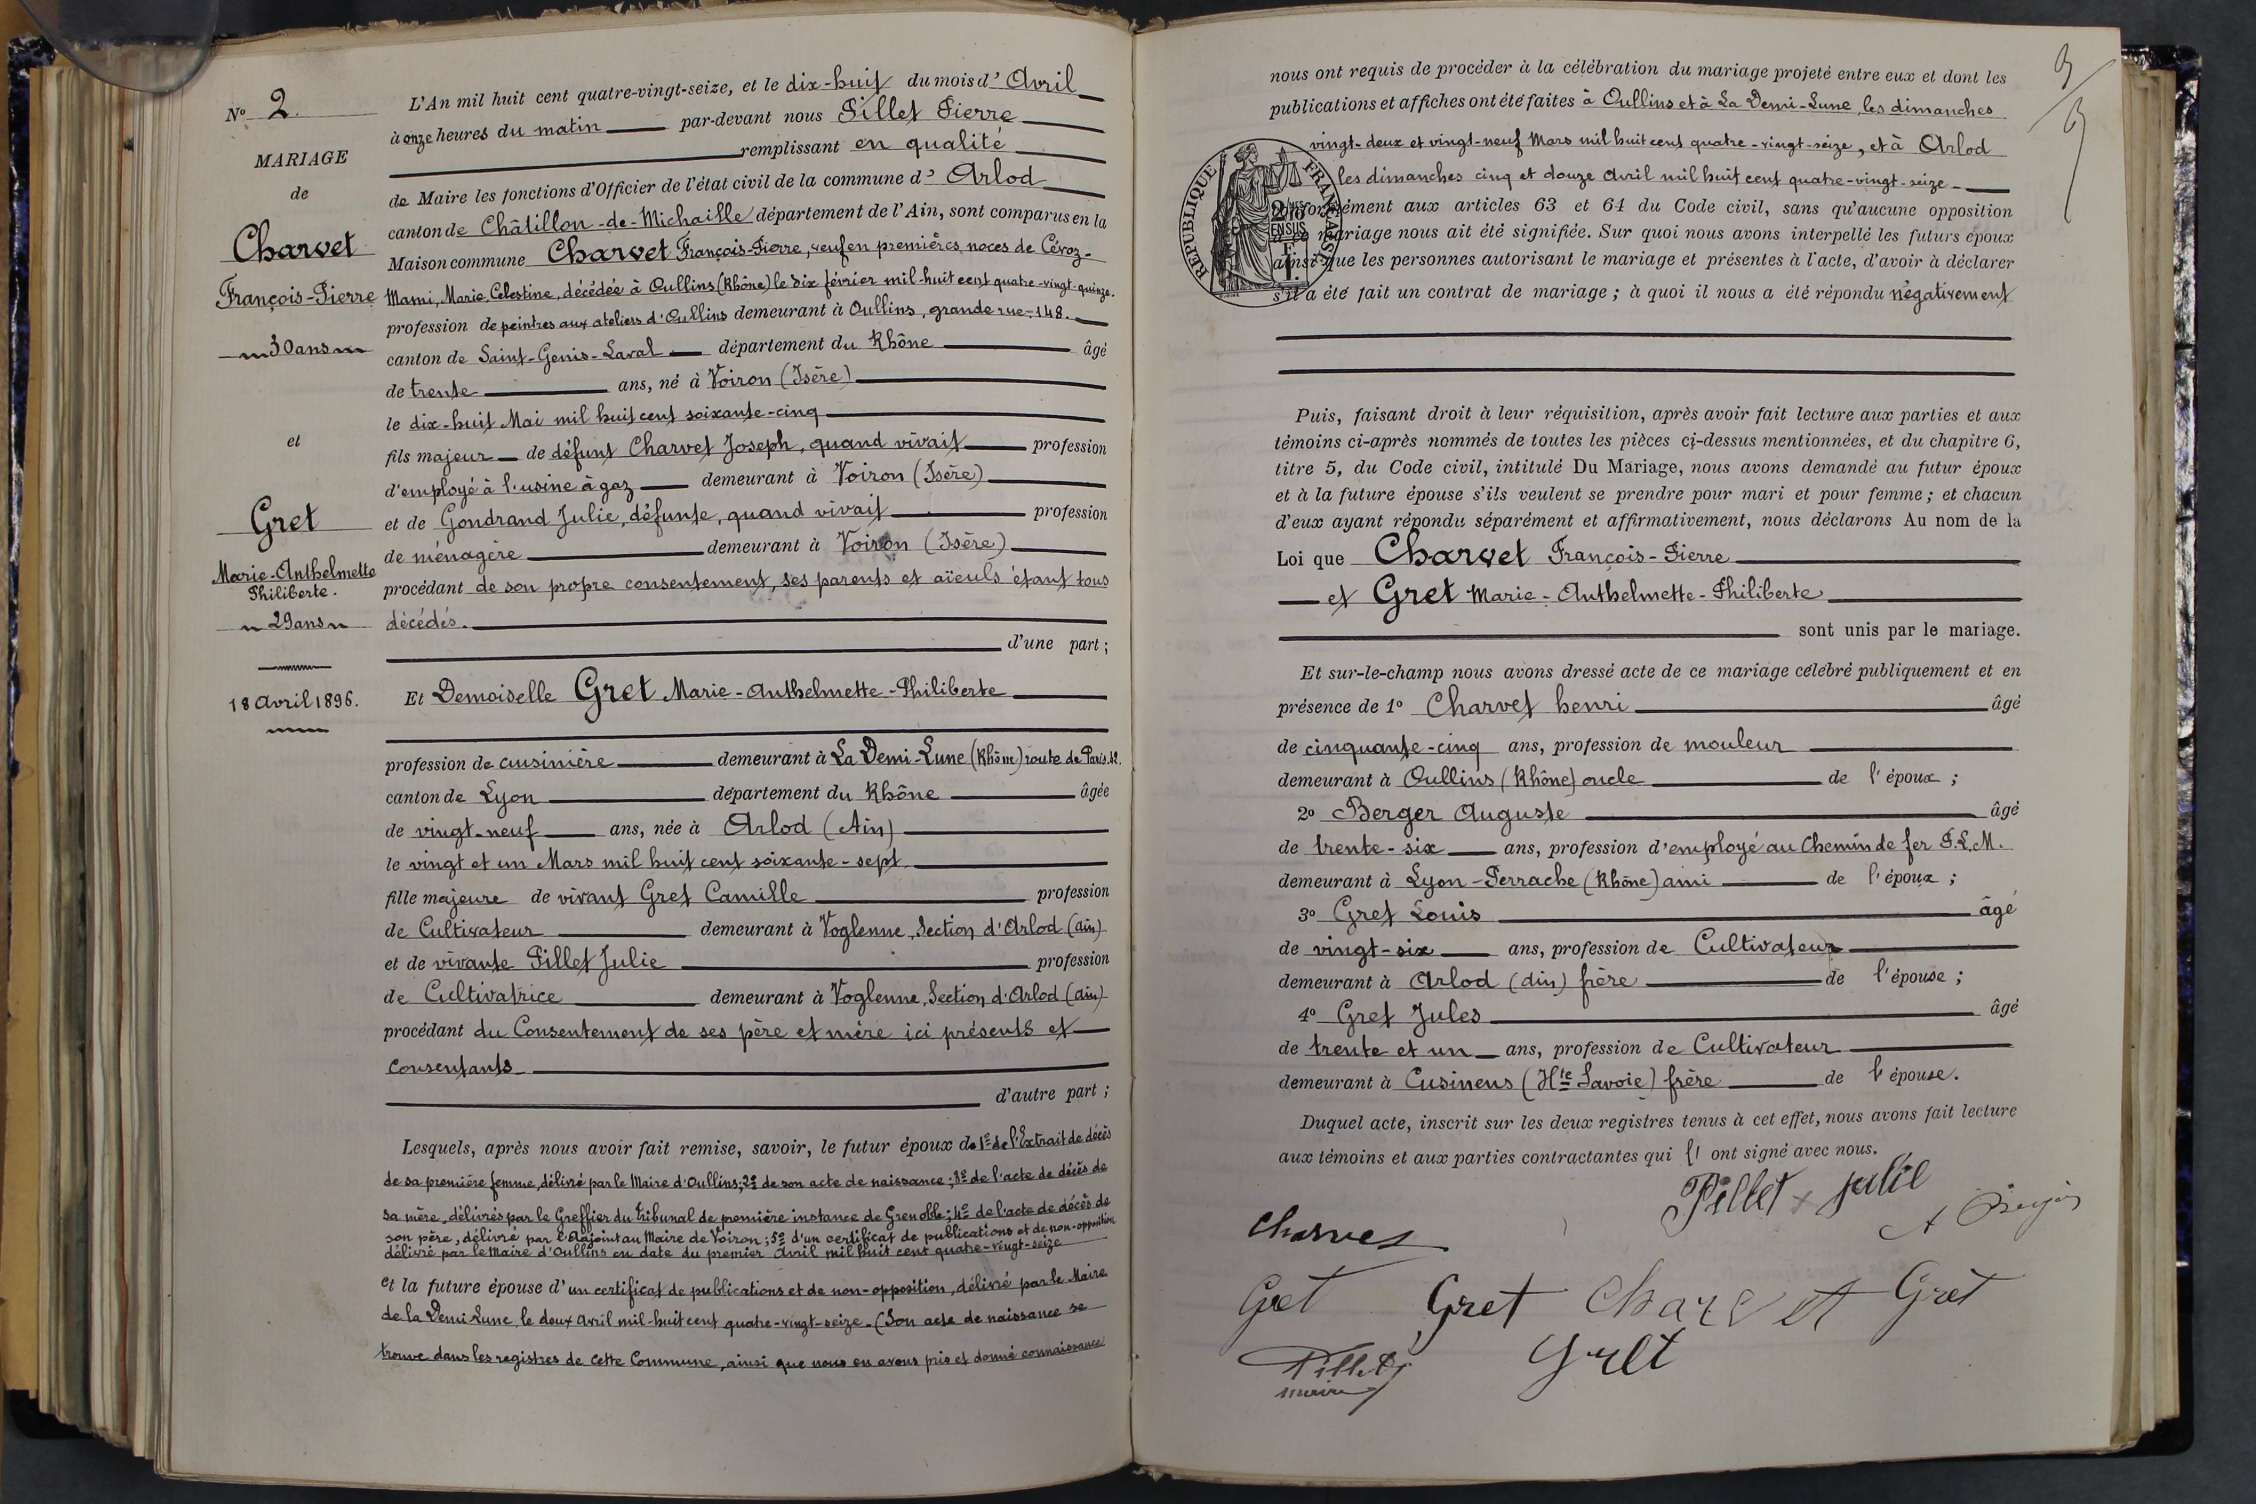 Nº 2.
MARIAGE
de
Charvet
François-Pierre
30 ans
et
Gret
Marie-Anthelmette
Philiberte.
29 ans
18 avril 1896.
L'An mil huit cent quatre-vingt-seize, et le dix-huit du mois d' Avril
à onze heures du matin par-devant nous Pillet Pierre
remplissant en qualité
de Maire les fonctions d'Officier de l'état civil de la commune d' Arlod
canton de Châtillon-de-Michaille département de l'Ain, sont comparus en la
Maison commune Charvet François-Pierre, veuf en premières noces de Cévoz-
Mami, Marie, Célestine, décédée à Oullins (Rhône) le dix février mil-huit cent quatre-vingt-quinze.
profession de peintres aux ateliers d'Oullins demeurant à Oullins, grande rue-148.
canton de Saint-Genis-Laval département du Rhône âgé
de trente ans, né à Voiron (Isère)
le dix-huit Mai mil huit cent soixante-cinq
fils majeur de défunt Charvet Joseph, quand vivait profession
d'employé à l'usine à gaz demeurant à Voiron (Isère)
et de Gondrand Julie, défunte, quand vivait profession
de ménagère demeurant à Voiron (Isère)
procédant de son propre consentement, ses parents et aïeuls étant tous
décédés.
d'une part ;
Et Demoiselle Gret Marie-Anthelmette-Philiberte
profession de cuisinière demeurant à La Demi-Lune (Rhône) route de Paris.42.
canton de Lyon département du Rhône âgée
de vingt-neuf ans, née à Arlod (Ain)
le vingt et un Mars mil huit cent soixante-sept
fille majeure de vivant Gret Camille profession
de Cultivateur demeurant à Voglenne, Section d'Arlod (ain)
et de vivante Pillet Julie profession
de Cultivatrice demeurant à Voglenne, Section d'Arlod (ain)
procédant du Consentement de ses père et mère ici présents et
consentants
d'autre part ;
Lesquels, après nous avoir fait remise, savoir, le futur époux de 1º de l'Extrait de décès
de sa première femme, délivré par le Maire d'Oullins; 2º de son acte de naissance; 3º de l'acte de décès de
sa mère, délivrés par le Greffier du tribunal de première instance de Grenoble; 4º de l'acte de décès de
son père, délivré par l'Adjoint au Maire de Voiron; 5º d'un certificat de publications et de non-opposition
délivré par le Maire d'Oullins en date du premier Avril mil huit cent quatre-vingt-seize
et la future épouse d' un certificat de publications et de non-opposition, délivré par le Maire
de la Demi-Lune, le deux Avril mil-huit cent quatre-vingt-seize. (Son acte de naissance se
trouve dans les registres de cette Commune, ainsi que nous en avons pris et donné connaissance
nous ont requis de procéder à la célébration du mariage projeté entre eux et dont les
publications et affiches ont été faites à Oullins et à La Demi-Lune, les dimanches
vingt-deux et vingt-neuf Mars mil huit cent quatre-vingt-seize, et à Arlod
les dimanches cinq et douze Avril mil huit cent quatre-vingt-seize
conformément aux articles 63 et 64 du Code civil, sans qu'aucune opposition
à ce mariage nous ait été signifiée. Sur quoi nous avons interpellé les futurs époux
ainsi que les personnes autorisant le mariage et présentes à l'acte, d'avoir à déclarer
s'il a été fait un contrat de mariage ; à quoi il nous a été répondu négativement
RÉPUBLIQUE FRANÇAISE
Puis, faisant droit à leur réquisition, après avoir fait lecture aux parties et aux
témoins ci-après nommés de toutes les pièces ci-dessus mentionnées, et du chapitre 6,
titre 5, du Code civil, intitulé Du Mariage, nous avons demandé au futur époux
et à la future épouse s'ils veulent se prendre pour mari et pour femme ; et chacun
d'eux ayant répondu séparément et affirmativement, nous déclarons Au nom de la
Loi que Charvet François-Pierre
et Gret Marie-Anthelmette-Philiberte
sont unis par le mariage.
Et sur-le-champ nous avons dressé acte de ce mariage célébré publiquement et en
présence de 1º Charvet henri âgé
de cinquante-cinq ans, profession de mouleur
demeurant à Oullins (Rhône) oncle de l'époux ;
2º Berger Auguste âgé
de trente-six ans, profession d'employé au Chemin de fer P.L.M.
demeurant à Lyon-Perrache (Rhône) ami de l'époux ;
3º Gret Louis âgé
de vingt-six ans, profession de Cultivateur
demeurant à Arlod (ain) frère de l'épouse ;
4º Gret Jules âgé
de trente et un ans, profession de Cultivateur
demeurant à Cusinens (Hte Savoie) frère de l'épouse.
Duquel acte, inscrit sur les deux registres tenus à cet effet, nous avons fait lecture
aux témoins et aux parties contractantes qui ont signé avec nous.
Pillet julie
Charvet A Berger
Gret Gret Charvet Gret
Pillet Gret
maire